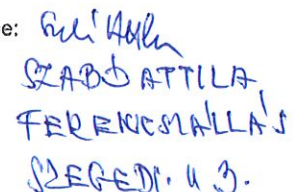 e:
SZABÓ ATTILA
FERENCSZÁLLÁS
SZEGEDI. U 3.